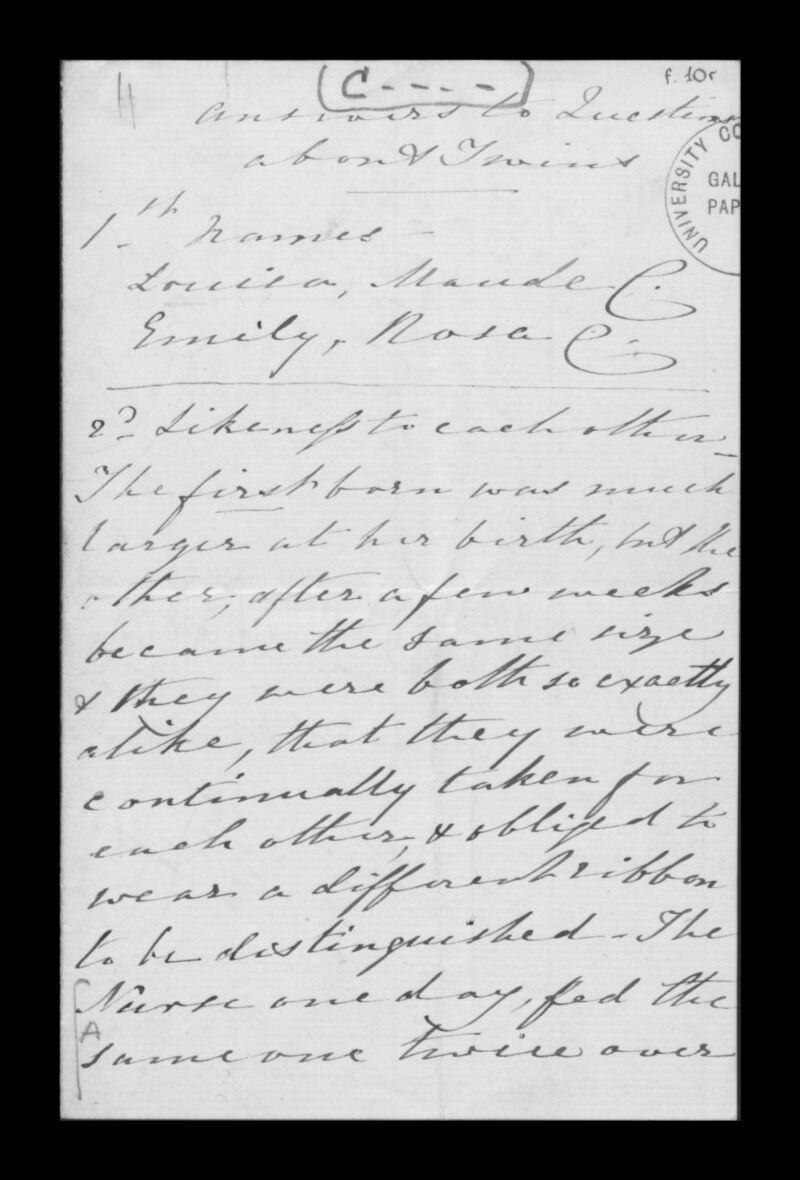 C - - - -
f. 10r
Answers to Questions
about Twins
UNIVERSITY CO
GAL
PAP
1st Names -
Louisa, Maude C.
Emily, Rosa C.
2d. Likeness to each other -
The first born was much
larger at her birth, but the
other, after a few weeks
became the same size
& they were both so exactly
alike, that they were
continually taken for
each other, & obliged to
wear a different ribbon
to be distinguished - The
Nurse one day, fed the
A
same one twice over